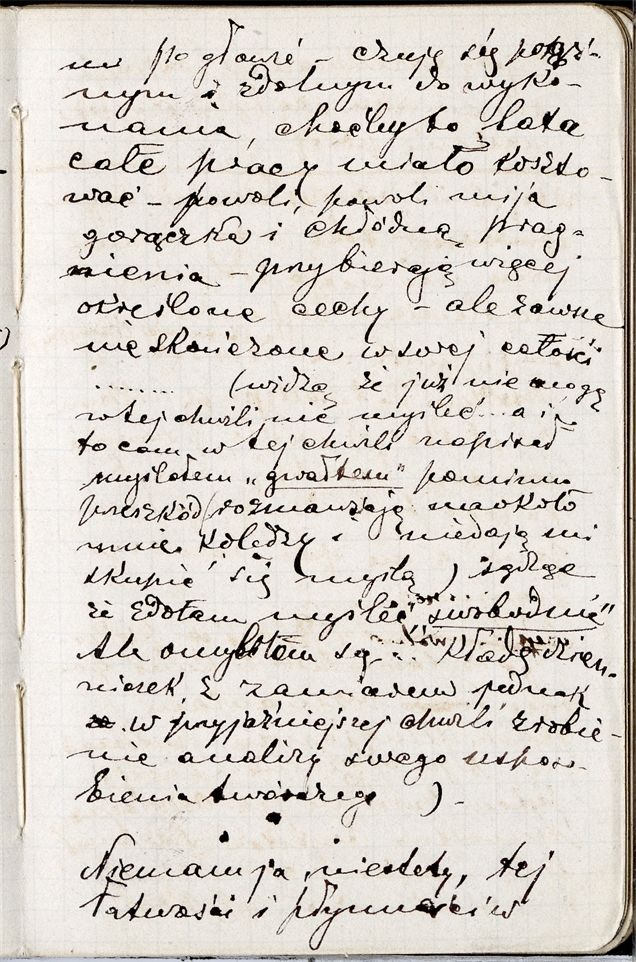 mi po głowie – czuję się potęż-
nym i zdolnym do wyko-
nania, choćby to lata
całe pracy miało koszto-
wać – powoli, powoli mija
gorączka i chłódną prag-
nienia – przybierają więcej
określone cechy – ale zawsze
nieskończone w swej całości
......... (widzę że już nie mogę
w tej chwili nic myśleć... a i
to com w tej chwili napisał
myślałem „gwałtem” pomimo
przeszkód (rozmawiają naokoło
mnie koledzy i niedają mi
skupić się myślą) sądząc
że zdołam myśleć „swobodnie”
Ale omyliłem się... Kładę dzien-
niczek, z zamiarem jednak
w przyjaźniejszej chwili zrobie-
nie analizy swego usposo-
bienia twórczego ) –
Niemam ja, niestety, tej
łatwości i płynności w